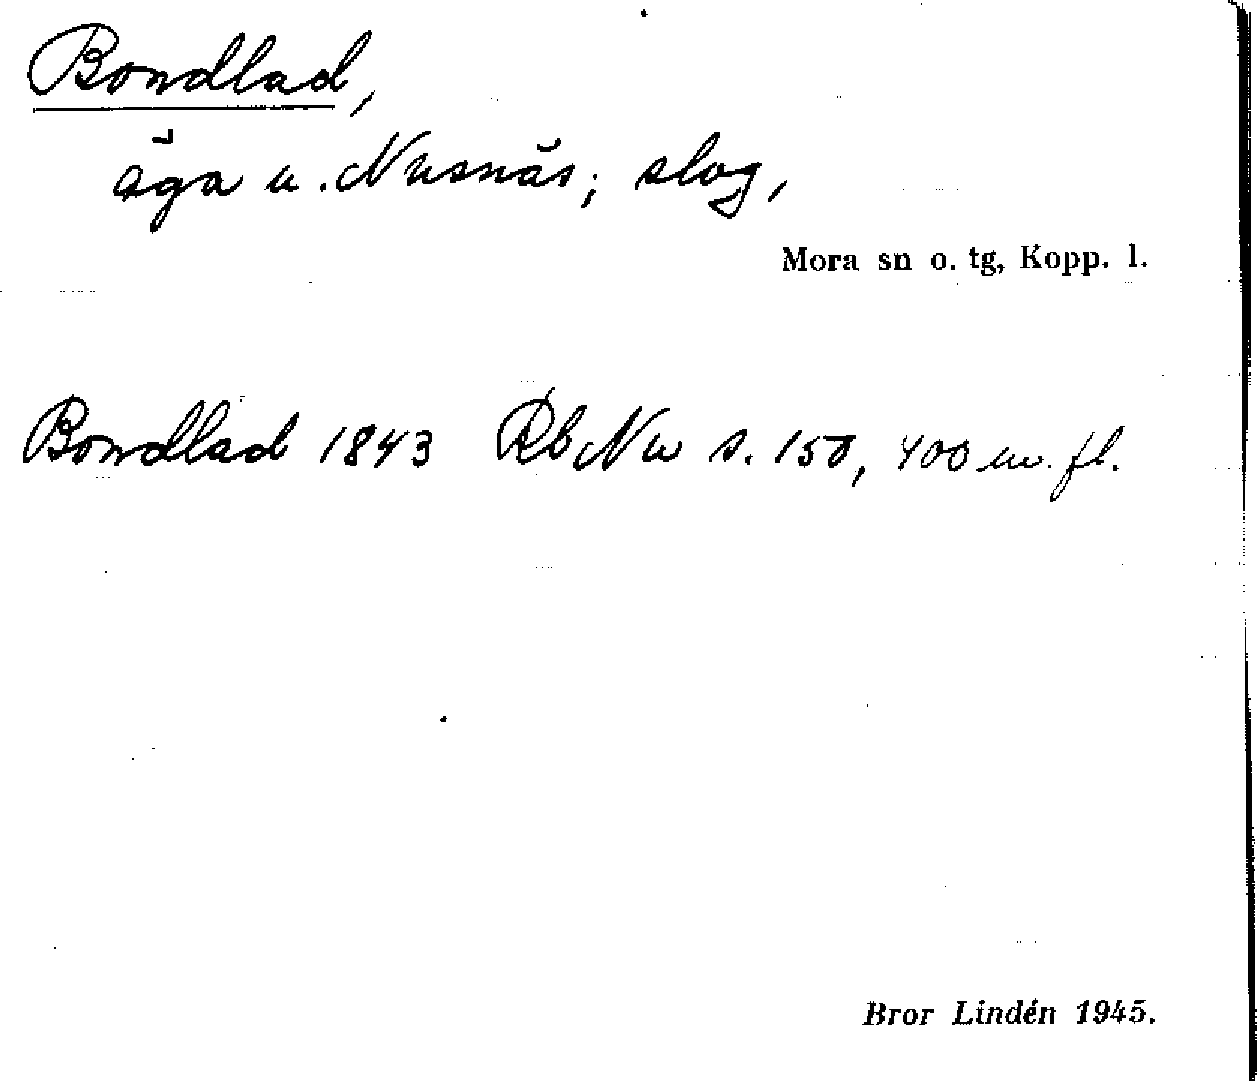 Bondlad,
äga u. Nusnäs; slog,
Mora sn o. tg, Kopp. l.
Bondlad 1843 Rb Nu s. 150, 400 m. fl.
Bror Lindén 1945.